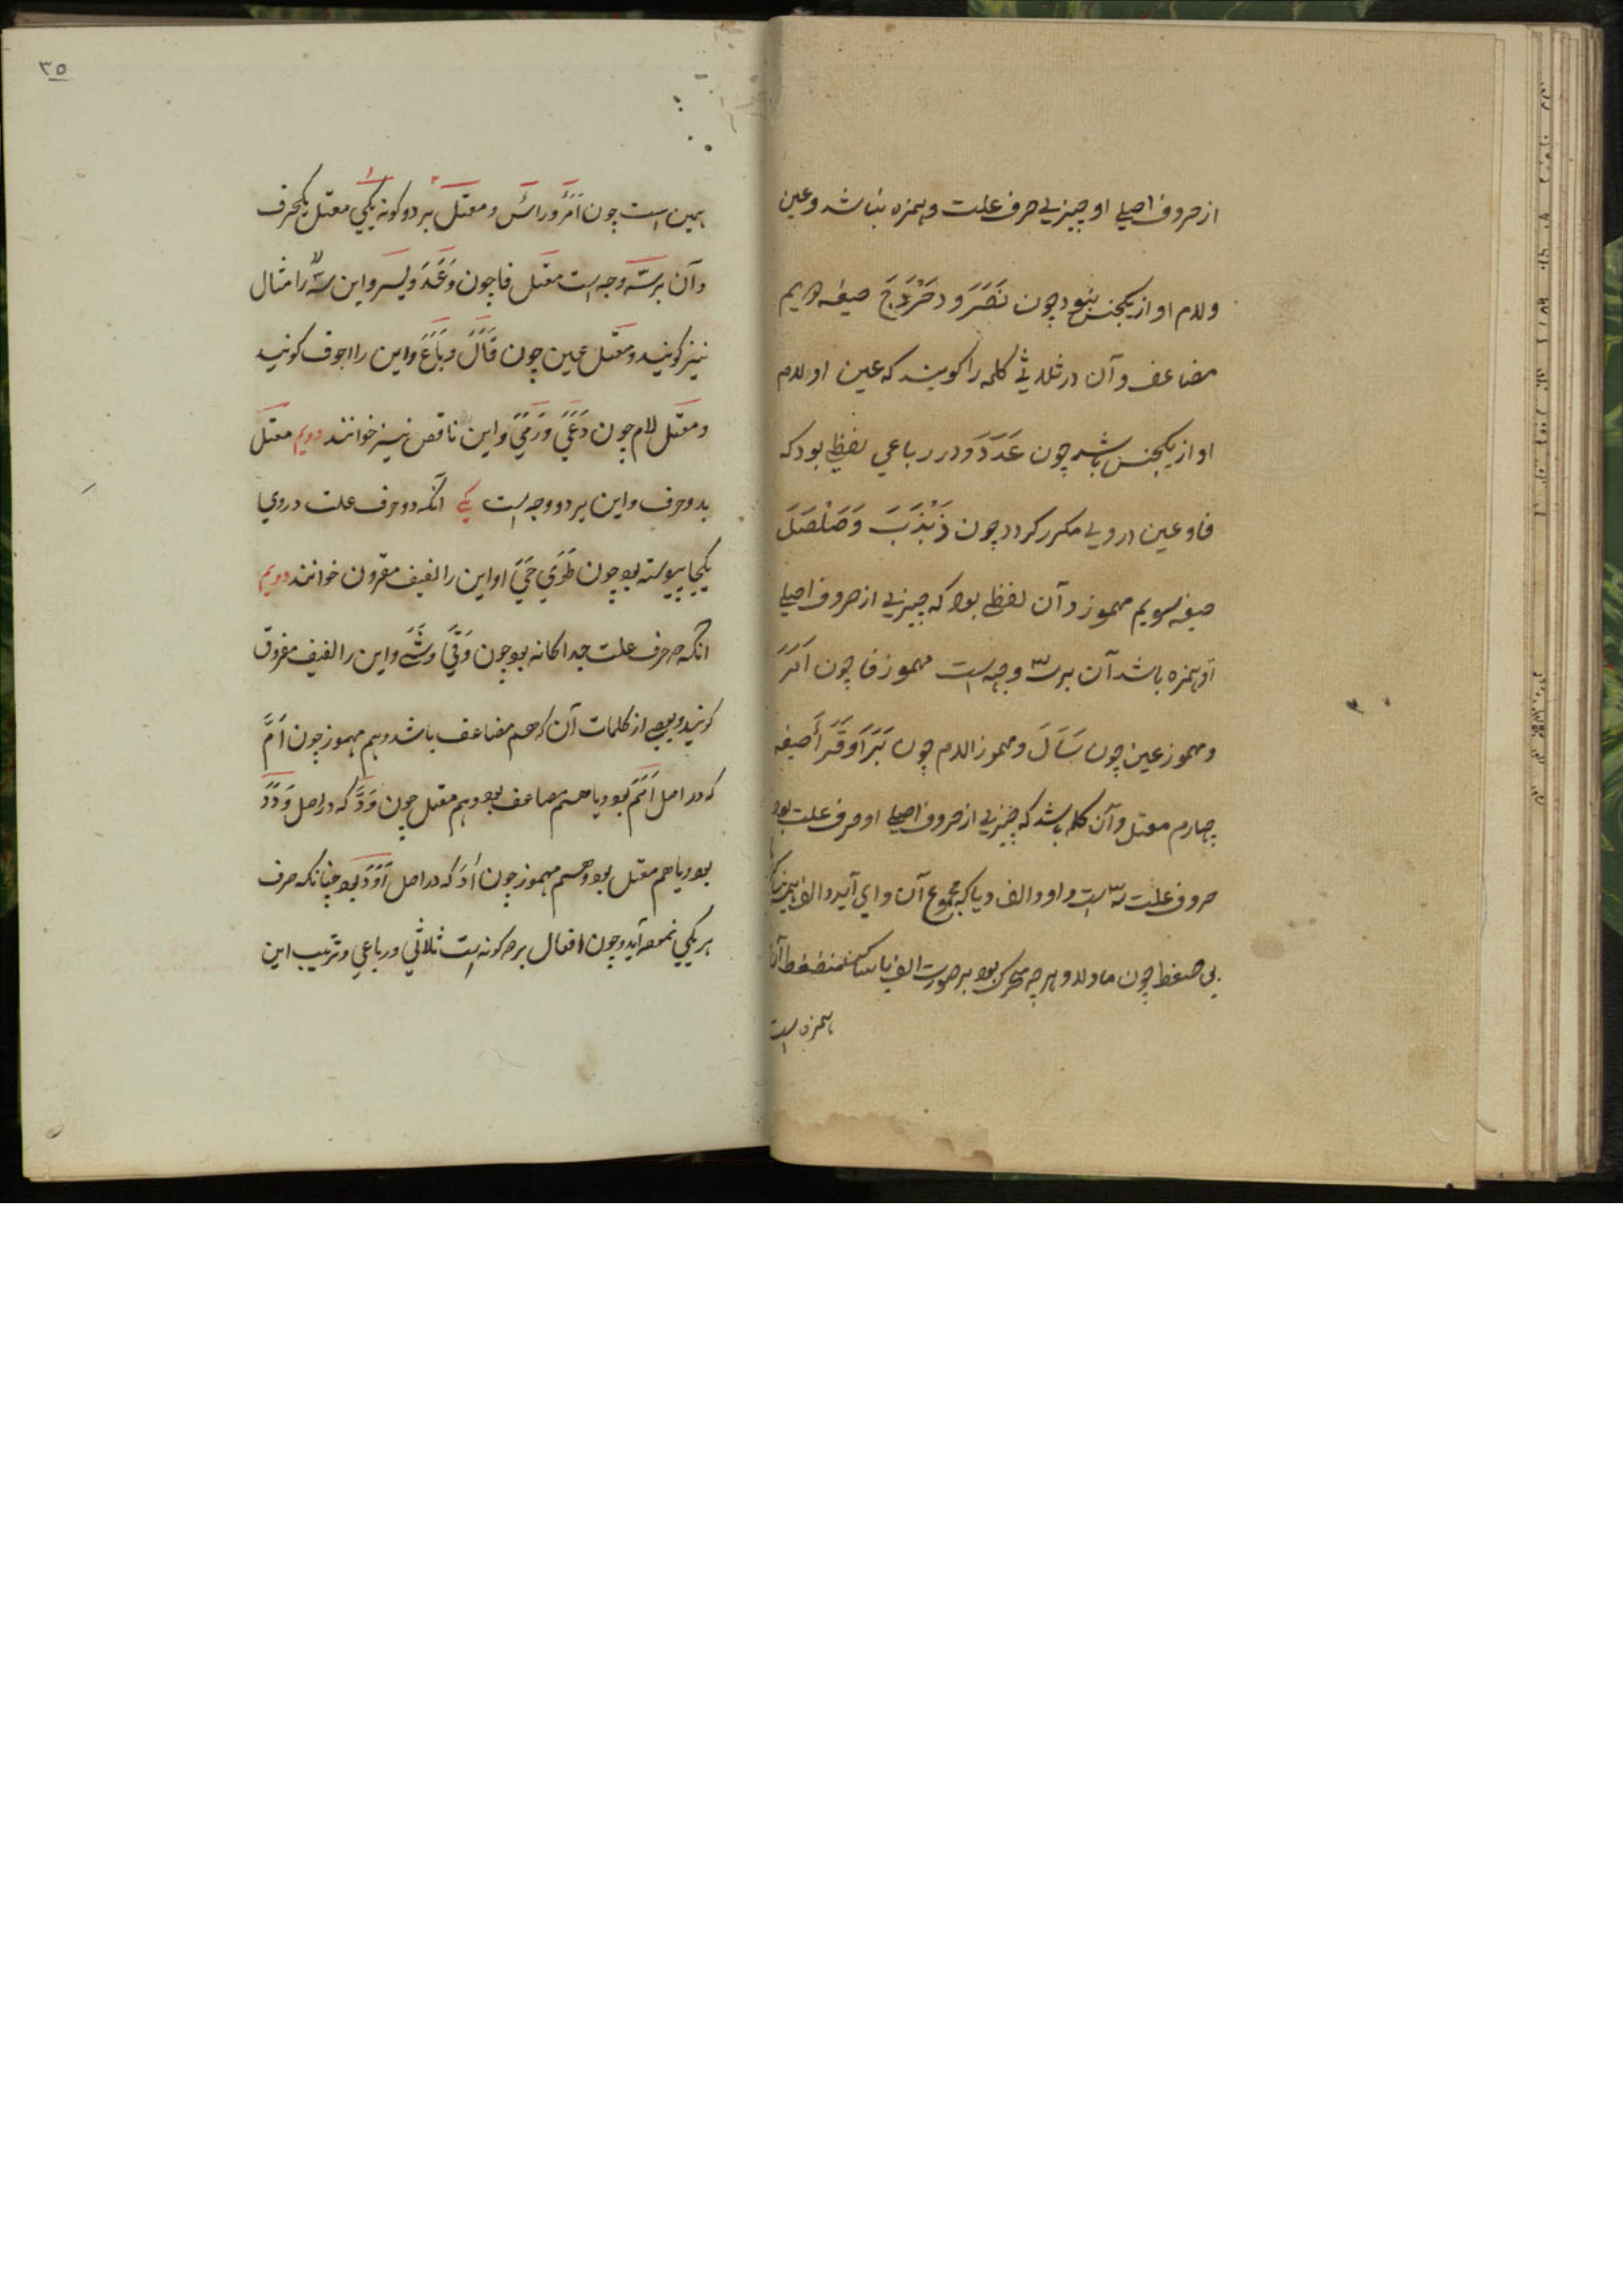 از حروف اصلی او چیزی حرف علت و همزه نباشد و عین
و لام او از یکجنس نبود چون نَصَرَ و دَحْرَجَ صیغه دویم
مضاعف و آن در ثلاثی کلمه را کویند که عین او لام
او از یکجنس باشد چون عَدَدَ و در رباعی لفظی بود که
فا و عین در وی مکرر کردد چون ذَبْذَبَ وَ صَلْصَلَ
صیغه سویم مهموز و آن لفظی بود که چیزی از حروف اصلی
او همزه باشد آن بر سه وجه است مهموز فا چون اَمَرَ
و مهموز عین چون سَاَلَ و مهموز اللام چون بَرَاَ و قَرَأَ صیغه
چهارم معتل و آن کلمه باشد که چیزی از حروف اصلی او حرف علت بود
حروف علت سه است واو و الف و یا که مجموع آن وای آید و الف همیشه
بی ضغط چون ما و لا و هر چه متحرک بود بر صورت الف یا ساکن منضغط آن
همزه است
۳۵
همین است چون اَمَرَ و رَاْس و معتل بر دو کونه یکی معتل یکحرف
و آن بر سه وجه است معتل فا چون وَعَدَ و یسر و این را مثال
نیز کویند و معتل عین چون قَالَ وَ بَاعَ و این را اجوف کویند
و معتل لام چون دَعَیَ وَ رَمَیَ و این ناقص نیز خوانند دویم معتل
بدو حرف و این بر دو وجه است یکی آنکه دو حرف علت در وی
یکجا پیوسته بود چون طَوَی حَیَیَ او این را لفیف مقرون خوانند دویم
انکه حرف علت جداکانه بود چون وَقَیَ وَشَیَ و این را لفیف مفروق
کویند و بعضی از کلمات آن که هم مضاعف باشد و هم مهموز چون اَمَّ
که در اصل اَمَمَ بود یا هم مضاعف بود و هم معتل چون وَدَّ که در اصل وَدَدَ
بود یا هم معتل بود و هم مهموز چون اٰدَ که در اصل اَوَدَ بود چنانکه حرف
هر یکی آید و چون افعال بر دو کونه است ثلاثی و رباعی و ترتیب این